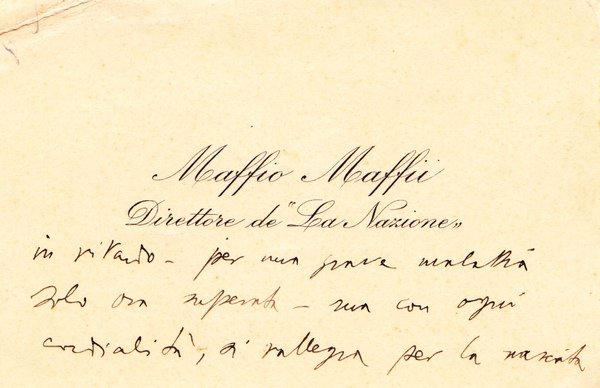 Maffio Maffii
Direttore de "La Nazione„
in ritardo - per una grave malattia
solo ora superata - ma con ogni
cordialità, si rallegra per la nascita